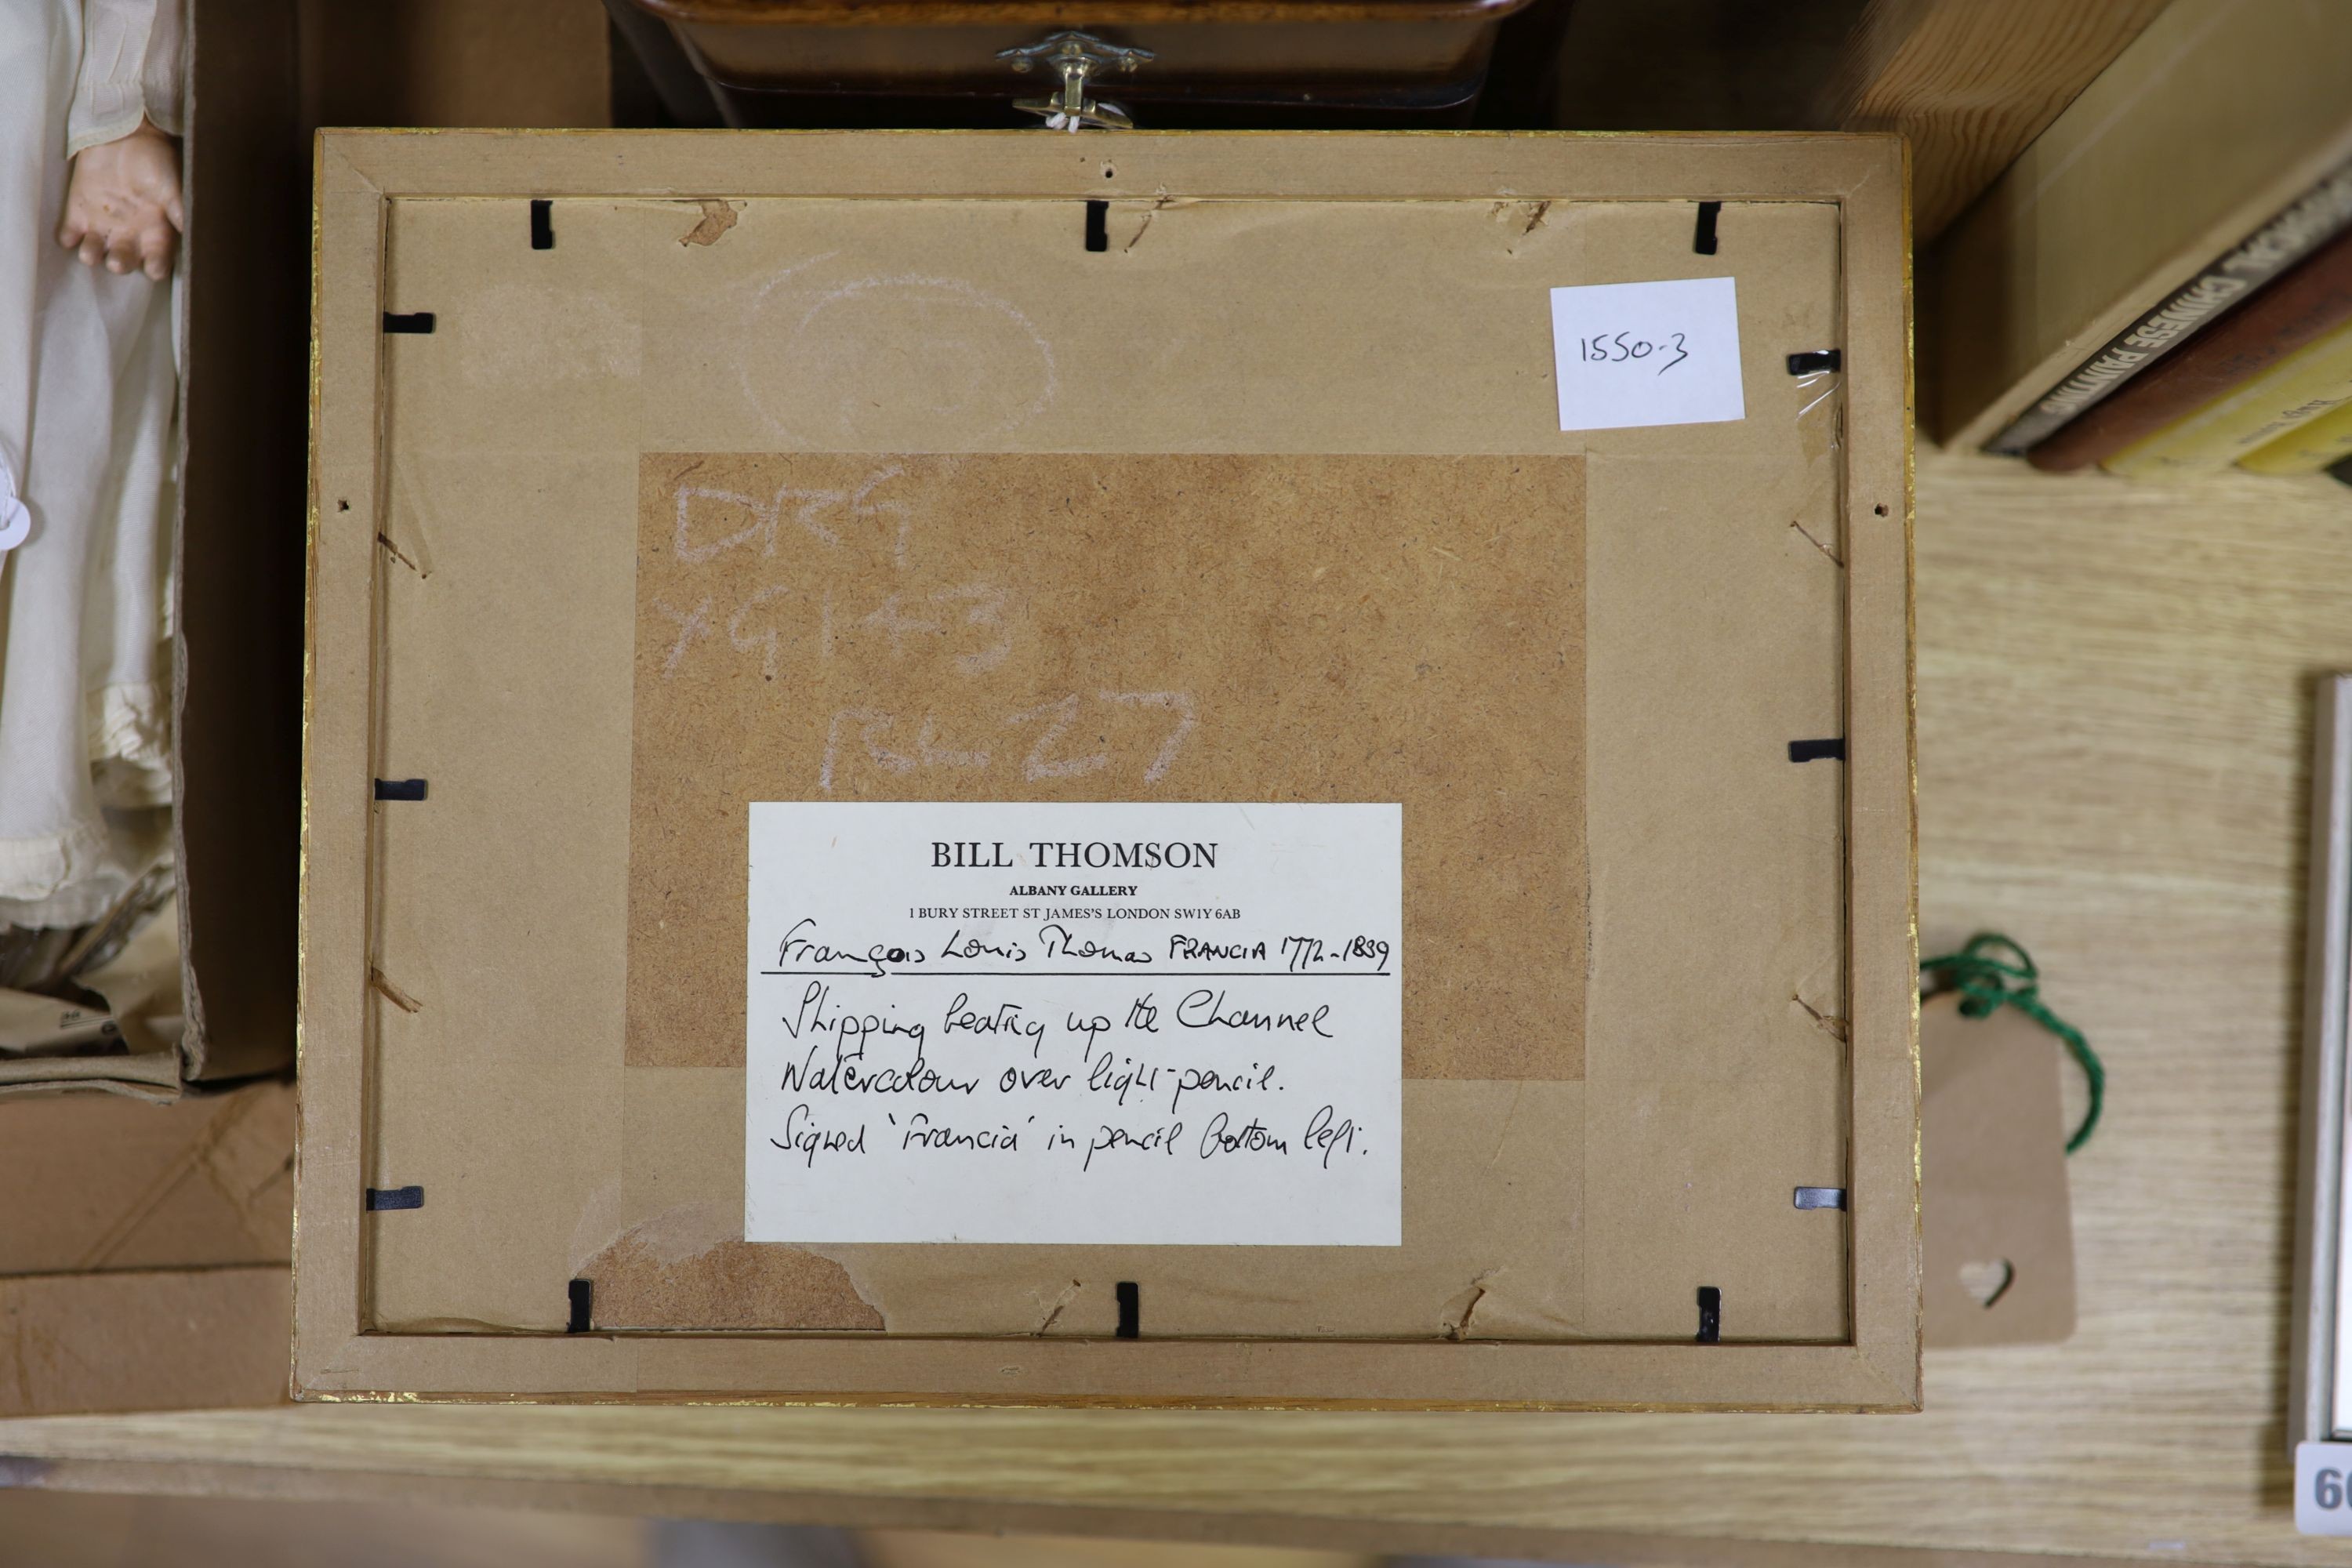 CHINESE PAINTING
1550-3
DRG
RL27
BILL THOMSON
ALBANY GALLERY
1 BURY STREET ST JAMES'S LONDON SW1Y 6AB
François Louis Thomas FRANCIA 1772-1839
Shipping beating up the Channel
Watercolour over light pencil.
Signed 'Francia' in pencil bottom left.